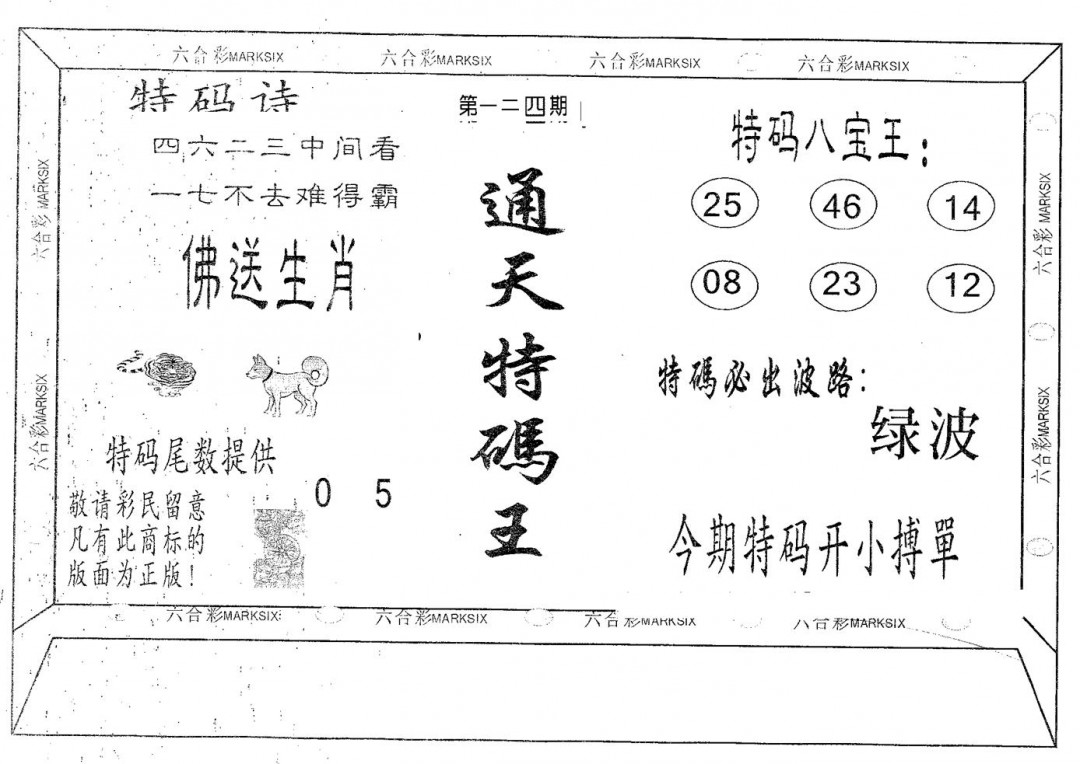 六合彩MARKSIX
六合彩MARKSIX
六合彩MARKSIX
六合彩MARKSIX
特码诗
四六二三中间看
一七不去难得霸
佛送生肖
特码尾数提供
0 5
敬请彩民留意
凡有此商标的
版面为正版！
第一二四期
通天特碼王
特码八宝王：
25 46 14
08 23 12
特碼必出波路：
绿波
今期特码开小搏單
六合彩MARKSIX
六合彩MARKSIX
六合彩MARKSIX
六合彩MARKSIX
六合彩MARKSIX
六合彩MARKSIX
六合彩MARKSIX
六合彩MARKSIX